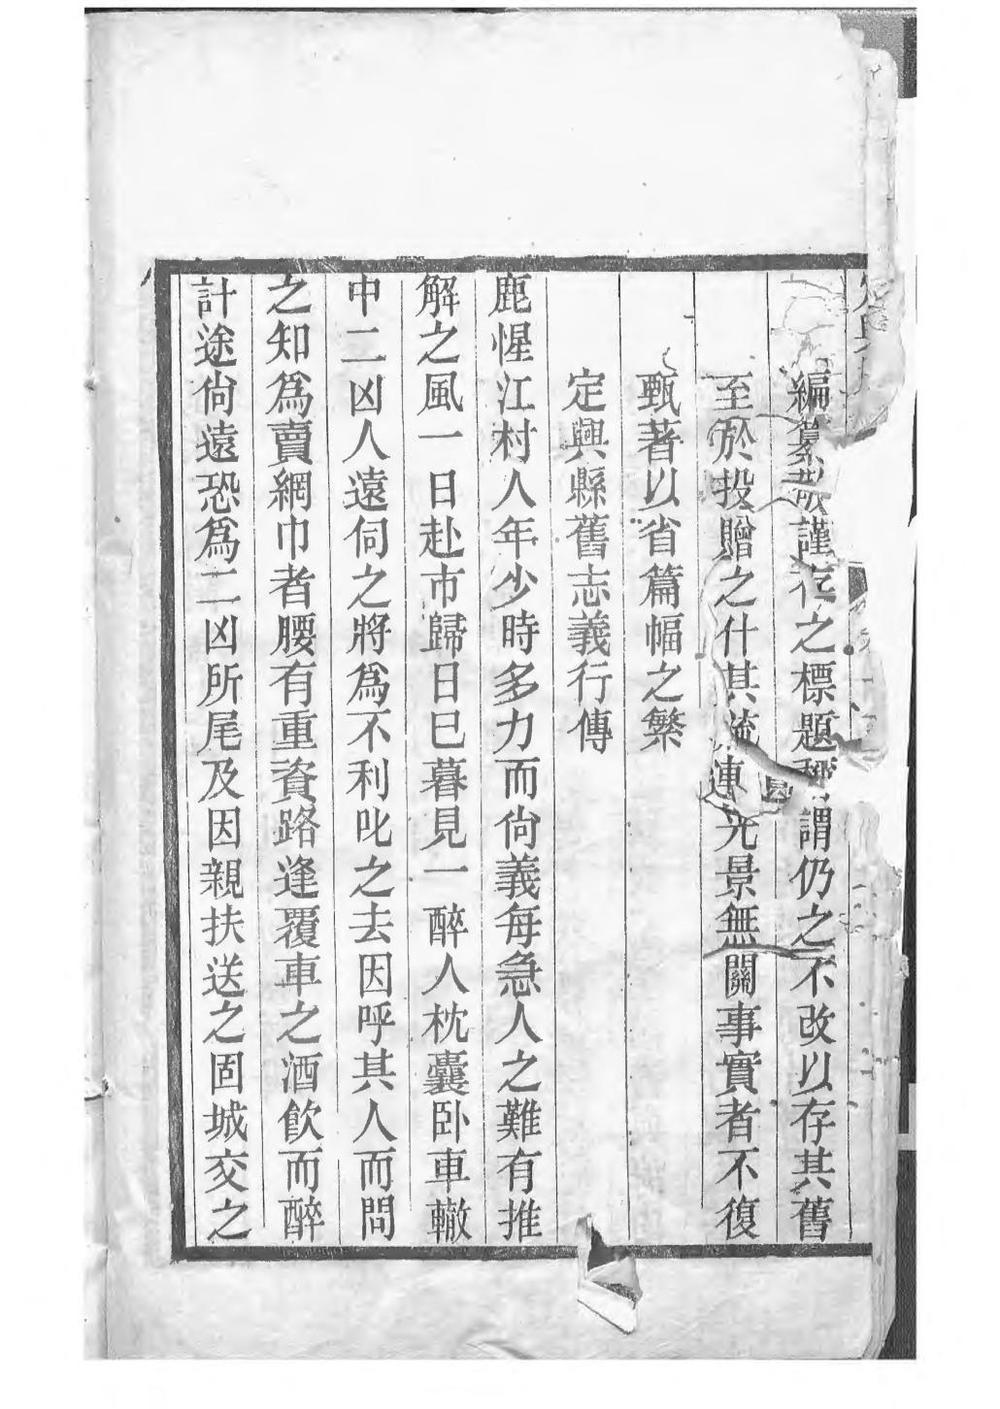 編纂謹存之標題稱謂仍之不改以存其舊
至於投贈之什其流連光景無關事實者不復
甄著以省篇幅之繁
定興縣舊志義行傳
鹿惺江村人年少時多力而尙義每急人之難有推
解之風一日赴市歸日已暮見一醉人枕囊卧車轍
中二凶人遠伺之將爲不利叱之去因呼其人而問
之知爲賣網巾者腰有重資路逢覆車之酒飮而醉
計途尙遠恐爲二凶所尾及因親扶送之固城交之